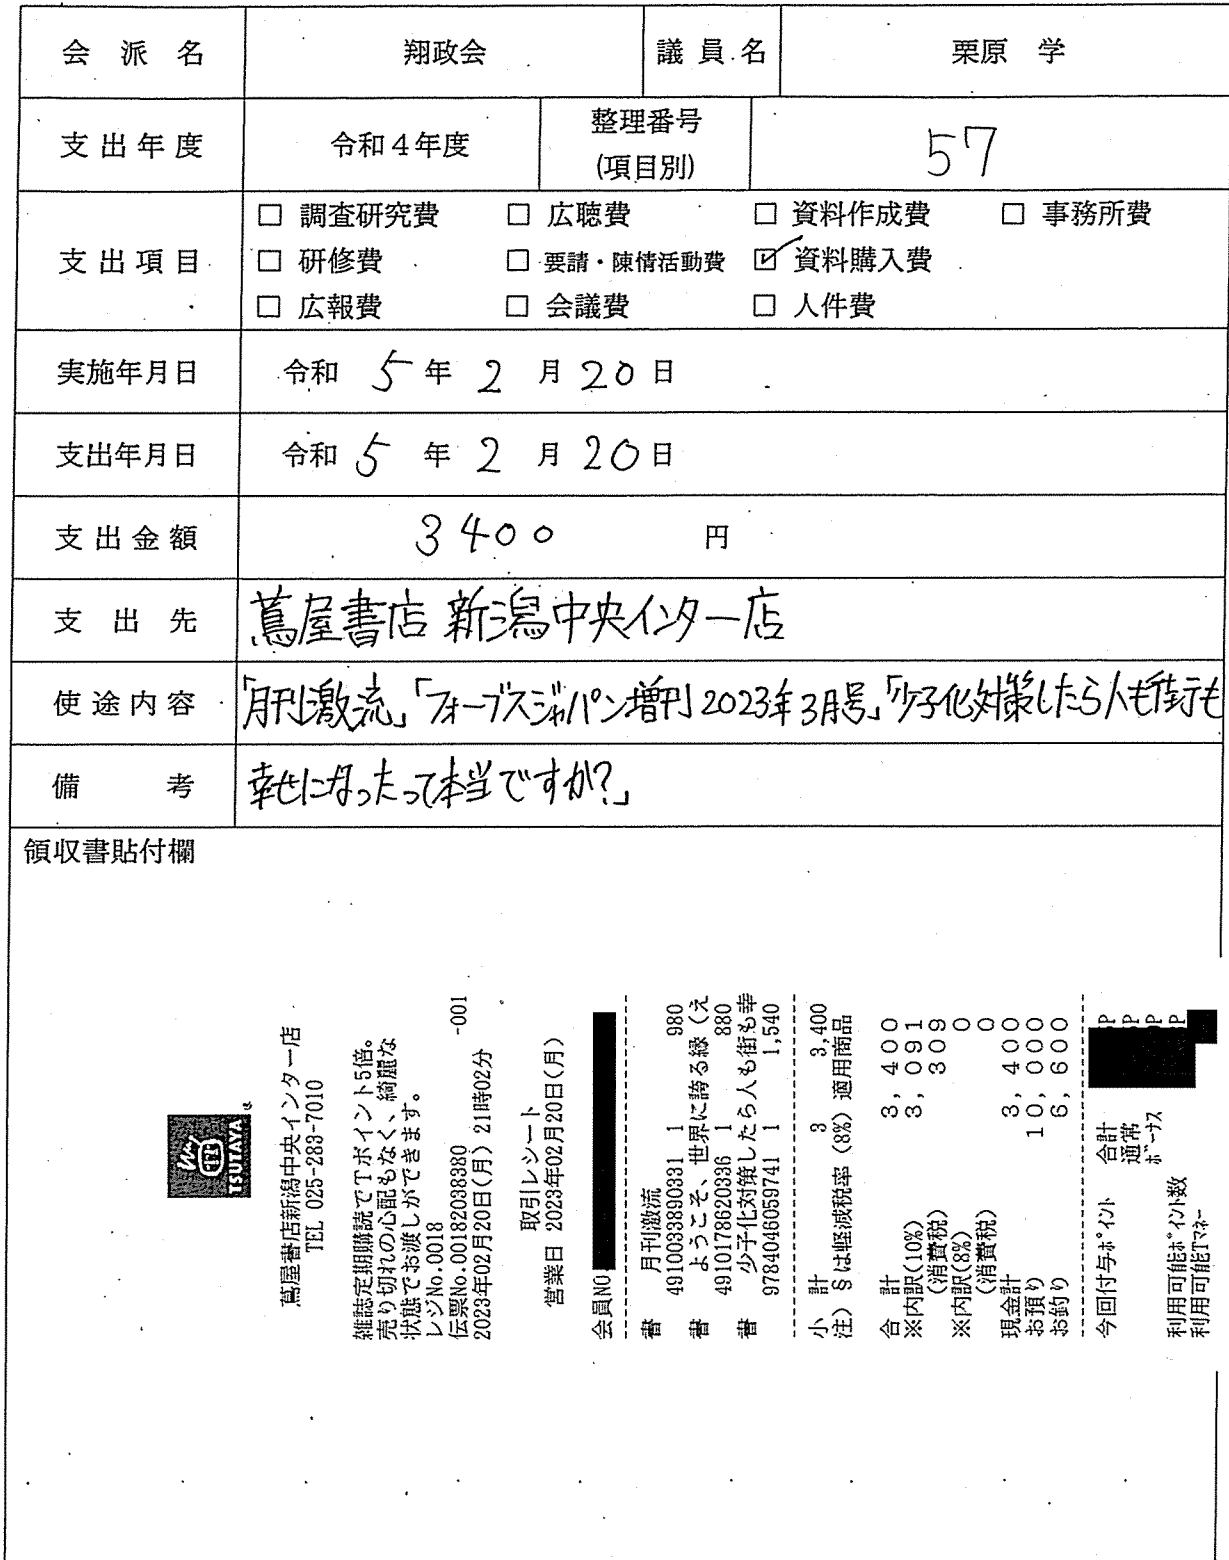 会派名 翔政会 議員名 栗原 学
支出年度 令和4年度 整理番号 (項目別) 57
支出項目
□ 調査研究費 □ 広聴費 □ 資料作成費 □ 事務所費
□ 研修費 □ 要請・陳情活動費 ☑ 資料購入費
□ 広報費 □ 会議費 □ 人件費
実施年月日 令和 5 年 2 月 20 日
支出年月日 令和 5 年 2 月 20 日
支出金額 3400 円
支出先 蔦屋書店 新潟中央インター店
使途内容 「月刊激流」「フォーブスジャパン増刊2023年3月号」「少子化対策したら人も街も
備考 幸せになったって本当ですか?」
領収書貼付欄
TSUTAYA
蔦屋書店新潟中央インター店
TEL 025-283-7010
雑誌定期購読でTポイント5倍。
売り切れの心配もなく、綺麗な
状態でお渡しができます。
レジNo.0018
伝票No.001820383​80 -001
2023年02月20日(月) 21時02分
取引レシート
営業日 2023年02月20日(月)
会員NO
書 月刊激流
4910033890331 1 980
書 ようこそ、世界に誇る縁(え
4910178620336 1 880
書 少子化対策したら人も街も幸
9784046059741 1 1,540
小計 3 3,400
注) § は軽減税率 (8%) 適用商品
合計 3,400
※内訳(10%) 3,091
(消費税) 309
※内訳(8%) 0
(消費税) 0
現金計 3,400
お預り 10,000
お釣り 6,600
今回付与ポイント 合計 P
通常 P
ボーナス P
利用可能ポイント数 P
利用可能Tマネー